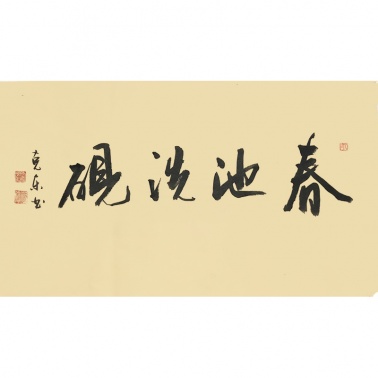 春池洗硯
克东书